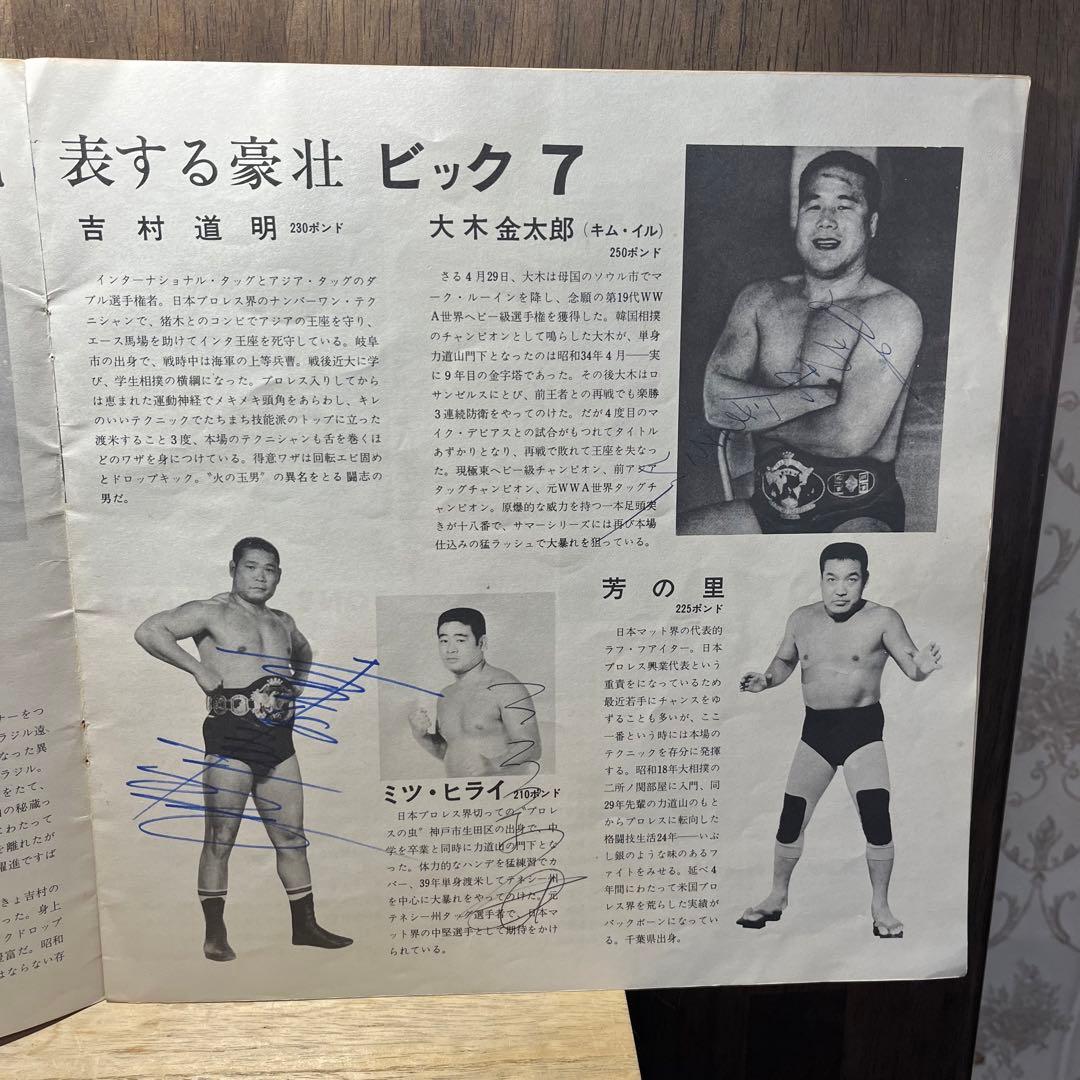 表する豪壮 ビック 7
吉村道明 230ポンド
インターナショナル・タッグとアジア・タッグのダ
ブル選手権者。日本プロレス界のナンバーワン・テク
ニシャンで、猪木とのコンビでアジアの王座を守り、
エース馬場を助けてインタ王座を死守している。岐阜
市の出身で、戦時中は海軍の上等兵曹。戦後近大に学
び、学生相撲の横綱になった。プロレス入りしてから
は恵まれた運動神経でメキメキ頭角をあらわし、キレ
のいいテクニックでたちまち技能派のトップに立った
渡米すること3度、本場のテクニシャンも舌を巻くほ
どのワザを身につけている。得意ワザは回転エビ固め
とドロップキック。〝火の玉男〟の異名をとる闘志の
男だ。
大木金太郎(キム・イル)
250ポンド
さる4月29日、大木は母国のソウル市でマ
ーク・ルーインを降し、念願の第19代WW
A世界ヘビー級選手権を獲得した。韓国相撲
のチャンピオンとして鳴らした大木が、単身
力道山門下となったのは昭和34年4月──実
に9年目の金字塔であった。その後大木はロ
サンゼルスにとび、前王者との再戦でも楽勝
3連続防衛をやってのけた。だが4度目のマ
イク・デビアスとの試合がもつれてタイトル
あずかりとなり、再戦で敗れて王座を失なっ
た。現極東ヘビー級チャンピオン、前アジア
タッグチャンピオン、元WWA世界タッグチ
ャンピオン。原爆的な威力を持つ一本足頭突
きが十八番で、サマーシリーズには再び本場
仕込みの猛ラッシュで大暴れを狙っている。
ミツ・ヒライ 210ポンド
日本プロレス界切っての〝プロレ
スの虫〟神戸市生田区の出身で、中
学を卒業と同時に力道山の門下とな
った。体力的なハンデを猛練習でカ
バー、39年単身渡米してテネシー州
を中心に大暴れをやってのけた。元
テネシー州タッグ選手者で、日本マ
ット界の中堅選手として期待をかけ
られている。
芳の里
225ポンド
日本マット界の代表的
ラフ・ファイター。日本
プロレス興業代表という
重責をになっているため
最近若手にチャンスをゆ
ずることも多いが、ここ
一番という時には本場の
テクニックを存分に発揮
する。昭和18年大相撲の
二所ノ関部屋に入門、同
29年先輩の力道山のもと
からプロレスに転向した
格闘技生活24年──いぶ
し銀のような味のあるフ
ァイトをみせる。延べ4
年間にわたって米国プロ
レス界を荒らした実績が
バックボーンになってい
る。千葉県出身。
ナーをつ
ラジル遠
なった異
ラジル。
をたて、
の秘蔵っ
にわたって
を離れたが
躍進ですば
きょ吉村の
った。身上
クドロップ
豊富だ。昭和
はならない存